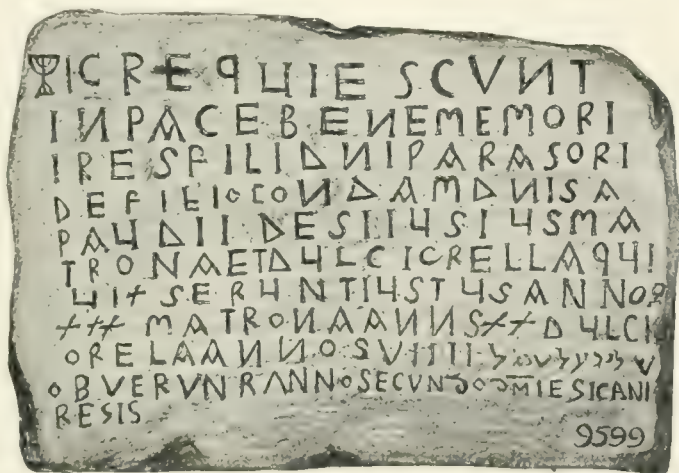 IC REQUIESCVNT
IN PACE BENEMEMORI
IRES FILI DNI PARASORI
DE FILIO CONDAM DNI SA
PAUDI I DEST IUSIUS MA
TRONA ET DULCICRELLA QUI
UIXSERUNT IUSTUS ANNOS
XXX MATRONA ANNS XX DULCI
ORELA ANNOS VIIII שלום על
OBVERVNR ANNO SECVNDO DMI ESICANI
RESIS
9599